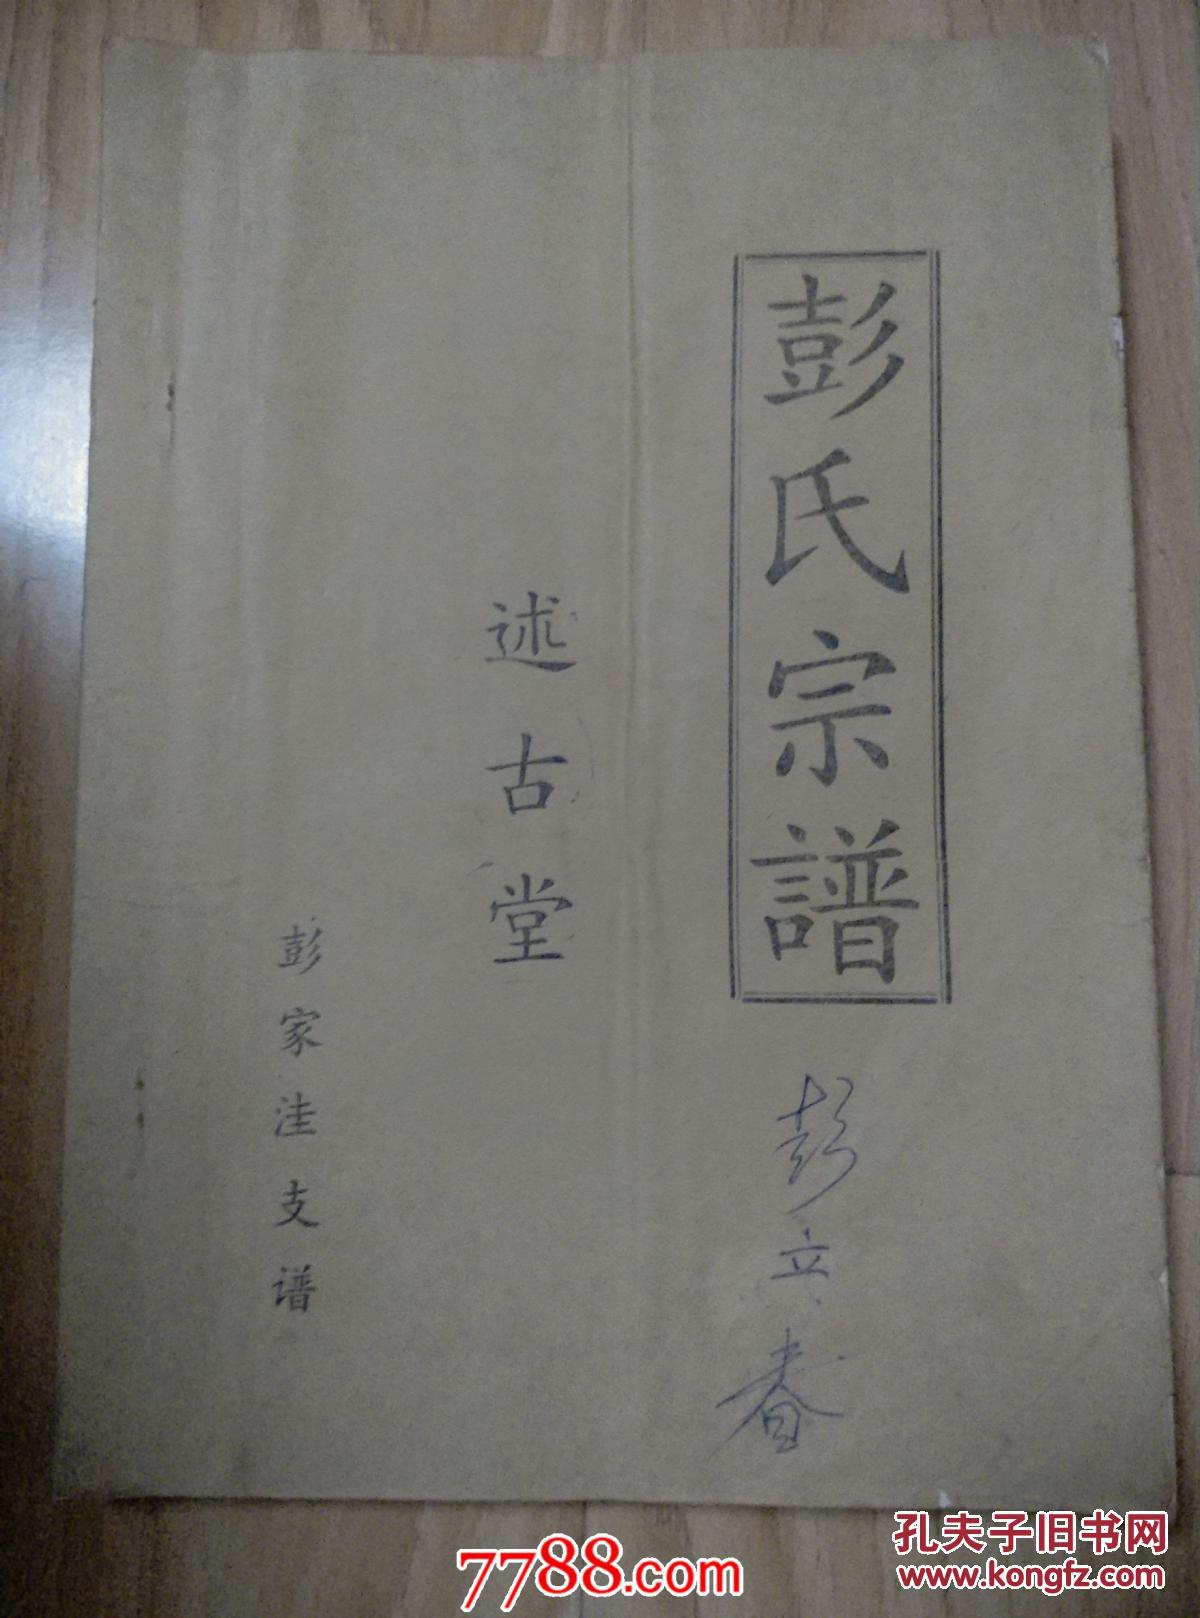 彭氏宗譜
彭立春
述古堂
彭家洼支谱
7788.com
孔夫子旧书网
www.kongfz.com